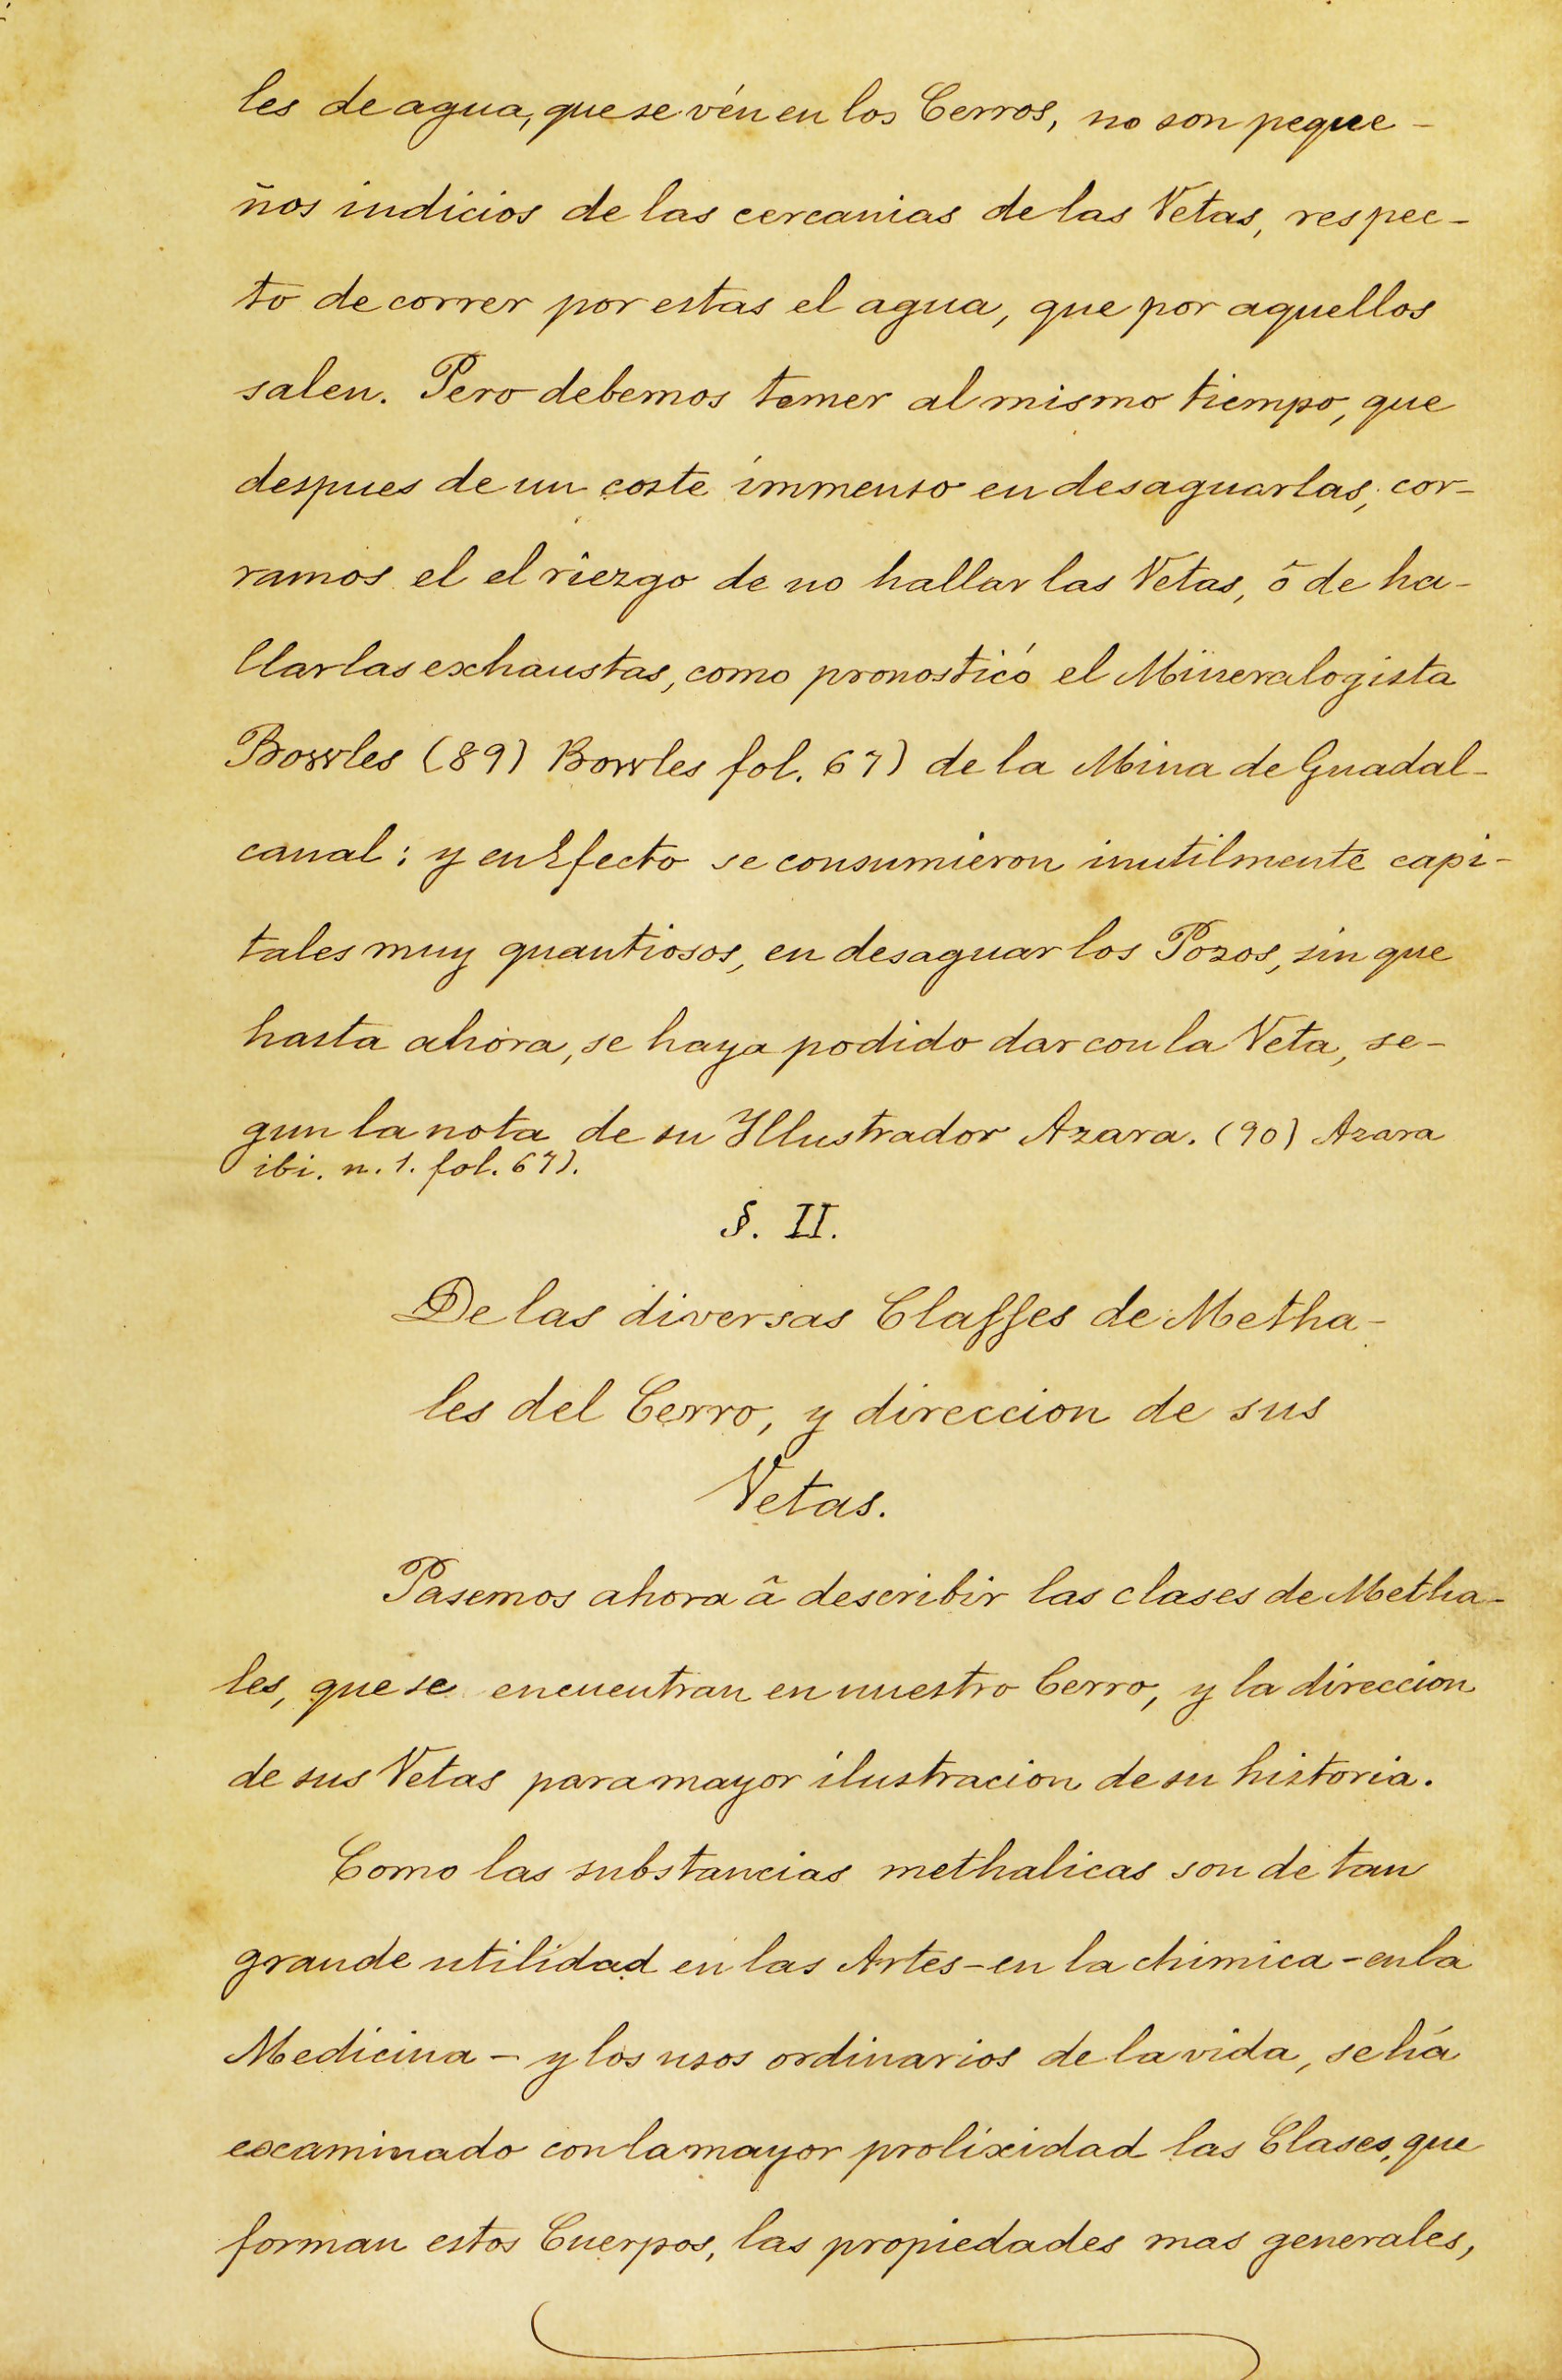 les de agua, que se vén en los Cerros, no son peque-
ños indicios de las cercanias de las Vetas, respec-
to de correr por estas el agua, que por aquellos
salen. Pero debemos temer al mismo tiempo, que
despues de un coste immenso en desaguarlas, cor-
ramos el el riezgo de no hallar las Vetas, õ de ha-
llarlas exhaustas, como pronosticó el Mineralogista
Bowles (89) Bowles fol. 67) de la Mina de Guadal-
canal: y en Efecto se consumieron inutilmente capi-
tales muy quantiosos, en desaguar los Pozos, sin que
hasta ahora, se haya podido dar con la Veta, se-
gun la nota de su Illustrador Azara. (90) Azara
ibi. n. 1. fol. 67).
§. II.
De las diversas Classes de Metha-
les del Cerro, y direccion de sus
Vetas.
Pasemos ahora ã describir las clases de Metha-
les, que se encuentran en nuestro Cerro, y la direccion
de sus Vetas para mayor ilustracion de su historia.
Como las substancias methalicas son de tan
grande utilidad en las Artes-en la chimica-en la
Medicina- y los usos ordinarios de la vida, se há
excaminado con la mayor prolixidad las Clases, que
forman estos Cuerpos, las propiedades mas generales,